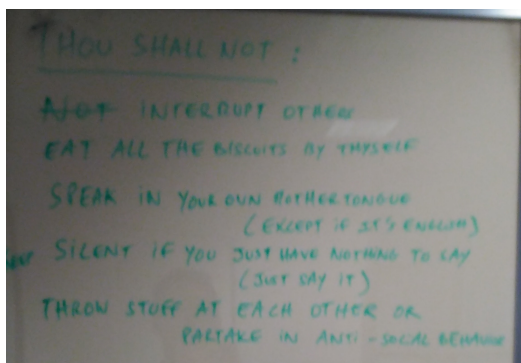 THOU SHALL NOT :
INTERRUPT OTHERS
EAT ALL THE BISCUITS BY THYSELF
SPEAK IN YOUR OWN MOTHER TONGUE
(EXCEPT IF IT'S ENGLISH)
SILENT IF YOU JUST HAVE NOTHING TO SAY
(JUST SAY IT)
THROW STUFF AT EACH OTHER OR
PARTAKE IN ANTI-SOCIAL BEHAVIOUR